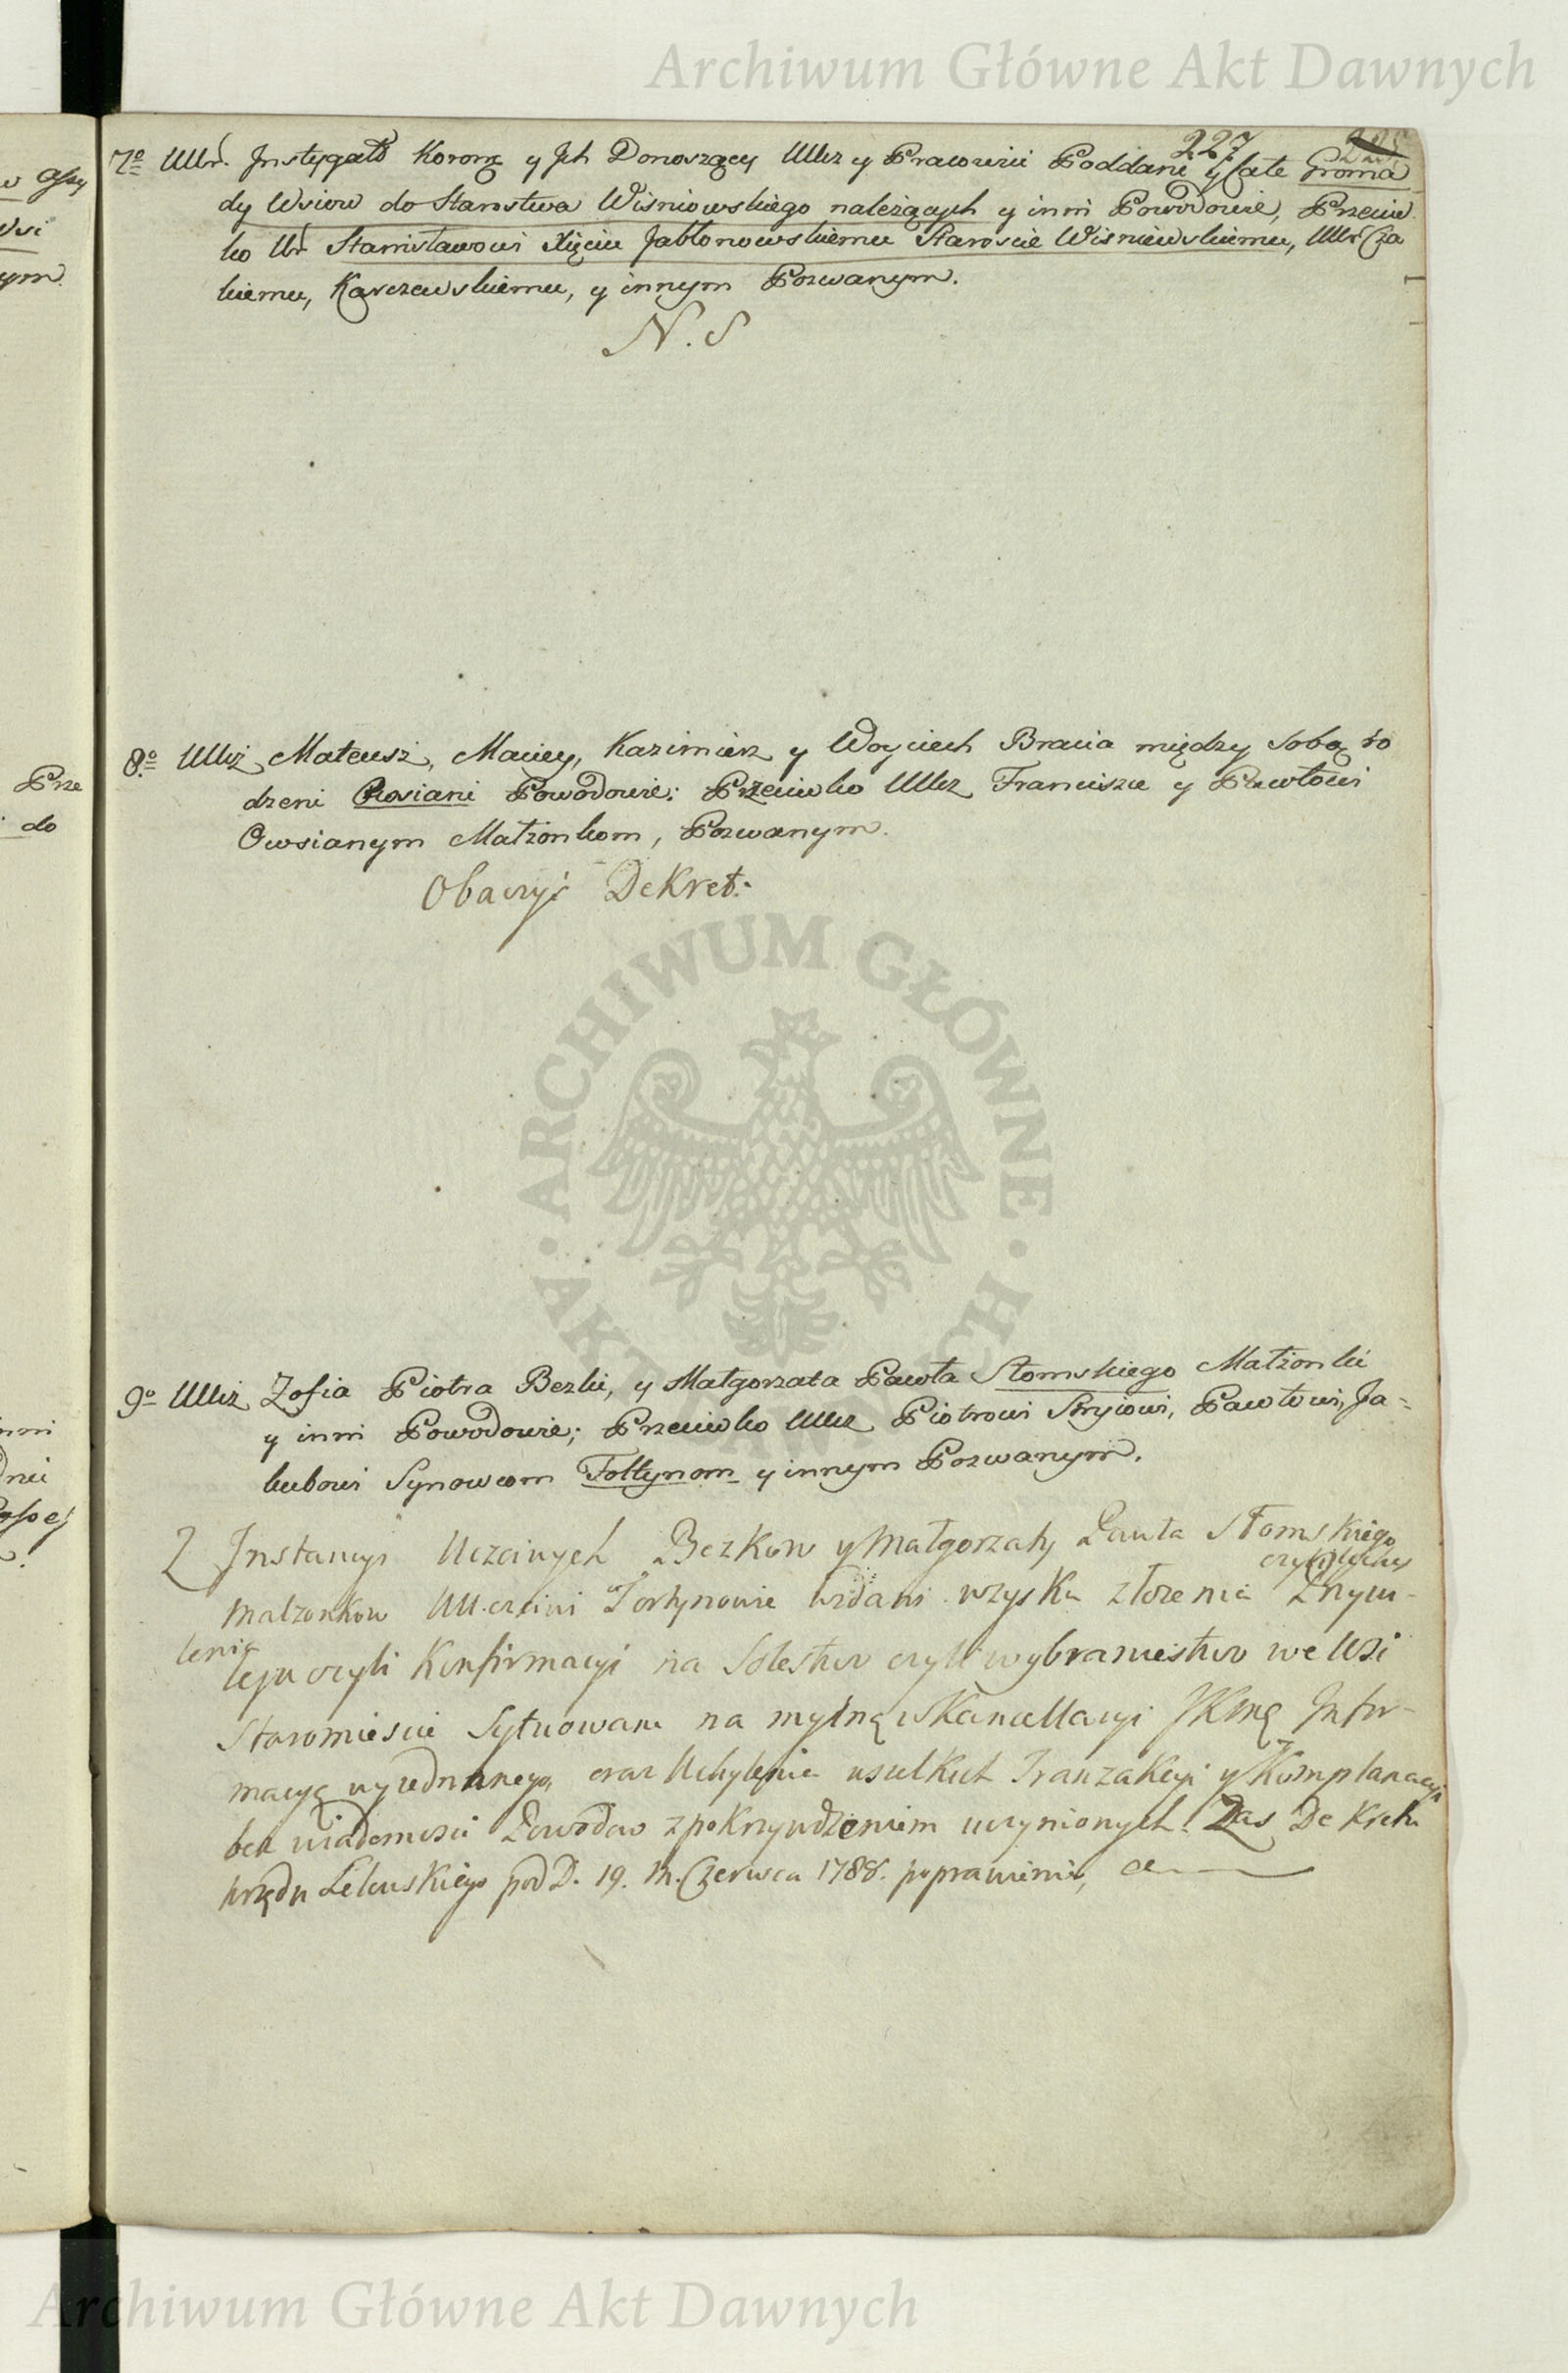 Archiwum Główne Akt Dawnych
227
7o Uur. Instygato Koronę y Jch Donoszący Uucz y Pracowici Poddani y Całe Groma
dy Wsiow do Starostwa Wisniowskiego należących y inni Powodowie, Przeciw
ko Ur Stanisławowi Xięciu Jabłonowskiemu Staroscie Wisniewskiemu, Uur Cza
kiemu, Karczewskiemu, y innym Pozwanym.
N. S
8o Uucz Mateusz, Maciey, Kazimierz y Woyciech Bracia między Sobą ro
dzeni Owsiani Powodowie: Przeciwko Uucz Franciszce y Pawłowi
Owsianym Małżonkom, Pozwanym.
Obaczyć Dekret:
ARCHIWUM GŁÓWNE AKT DAWNYCH
9o Uucz Zofia Piotra Bezki, y Małgorzata Pawła Słomskiego Małżonki
y inni Powodowie; Przeciwko Uucz Piotrowi Stryiowi, Pawłowi, Ja-
kubowi Synowcom Tołtynom y innym Pozwanym.
Z Instancyi Uczciwych Bezkow y Małgorzaty Pawła Słomskiego
Małzonkow UUczciwi wzysku złożenia Przywi-
leju czyli Konfirmacyi na Solestwo czyli wybraniestwo we Wsi
Staromiescie Sytuowane na mylną w Kancellaryi JKMę Infor-
macyą wyiednanego, oraz Uchylenia Tranzakcyi y Komplanacyi
bez wiadomosci Powodow z pokrzywdzeniem uczynionych. Zas Dekretu
Urzędu Lelowskiego pod D. 19. M. Czerwca 1788. poprawienie,
Archiwum Główne Akt Dawnych